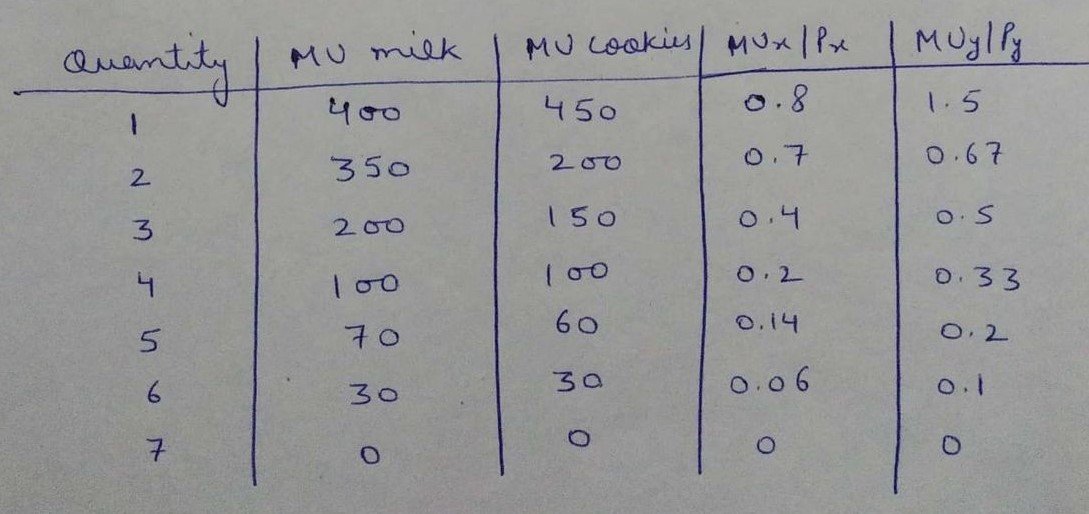 Quantity MU milk MU cookies MUx/Px MUy/Py
1 400 450 0.8 1.5
2 350 200 0.7 0.67
3 200 150 0.4 0.5
4 100 100 0.2 0.33
5 70 60 0.14 0.2
6 30 30 0.06 0.1
7 0 0 0 0